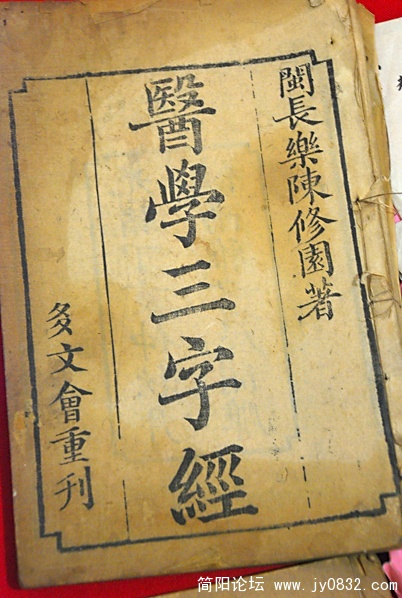 閩長樂陳修園著
醫學三字經
多文會重刋
简阳论坛 www.jy0832.com